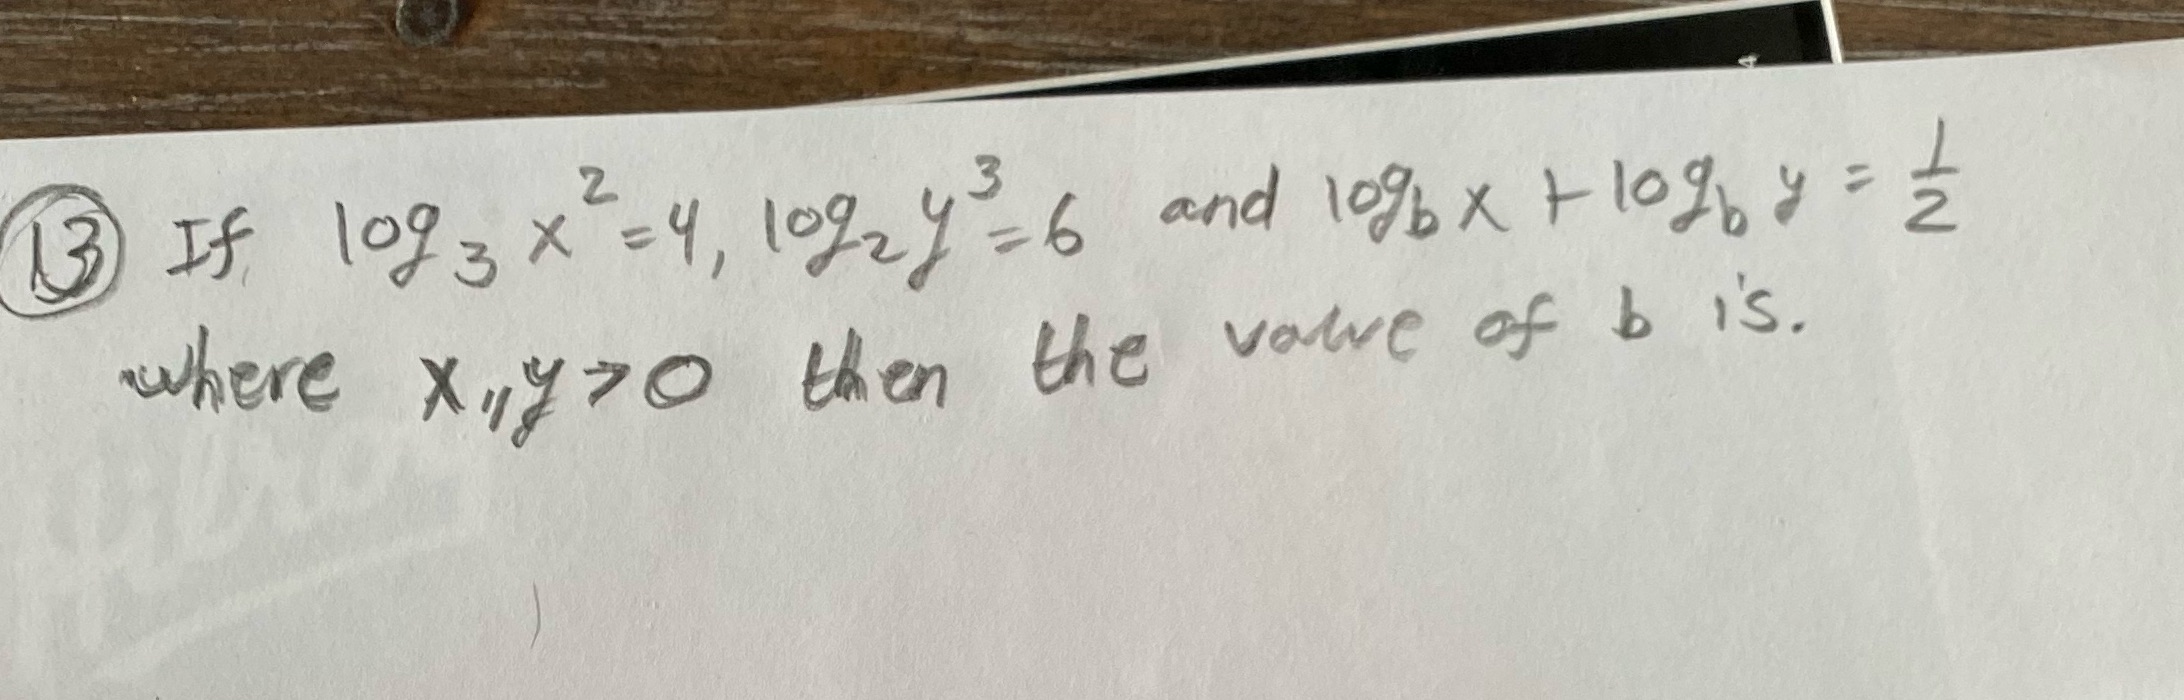 ⑬ If log₃ x² = 4, log₂ y³ = 6 and log_b x + log_b y = 1/2
where x,,y > 0 then the value of b is.